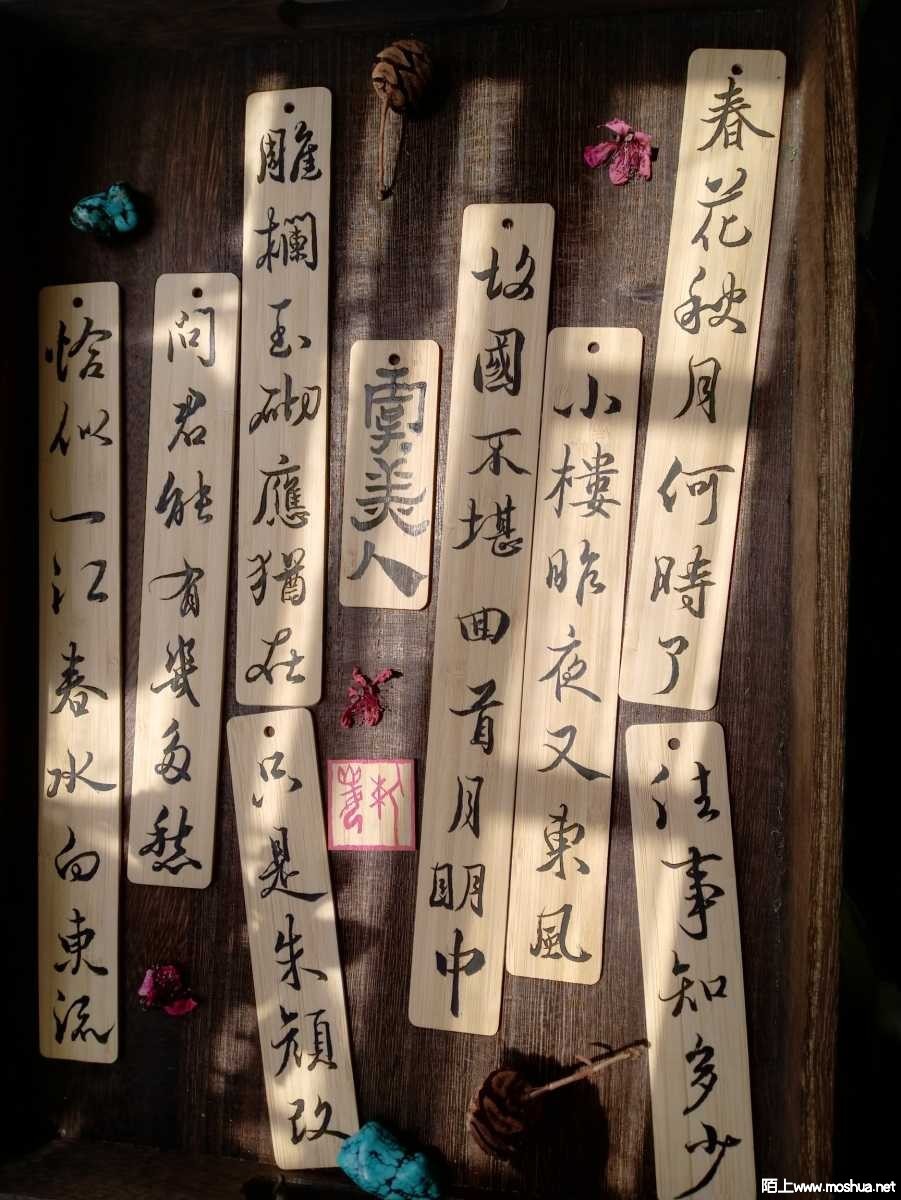 春花秋月何時了
往事知多少
小樓昨夜又東風
故國不堪回首月明中
虞美人
雕欄玉砌應猶在
只是朱顔改
問君能有幾多愁
恰似一江春水向東流
陌上www.moshua.net